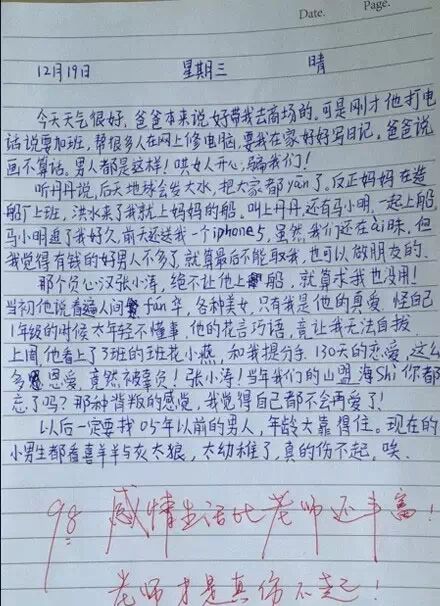 Date.
Page.
12月19日 星期三 晴
今天天气很好，爸爸本来说好带我去商场的。可是刚才他打电
话说要加班，帮很多人在网上修电脑，要我在家好好写日记。爸爸说
画不算话。男人都是这样！哄女人开心，骗我们！
听丹丹说，后天地球会发大水，把大家都yān了。反正妈妈在造
船厂上班，洪水来了我就上妈妈的船。叫上丹丹，还有马小明，一起上船，
马小明追了我好久，前天还送我一个iphone5，虽然我们还在ai昧，但
我觉得有钱的好男人不多了，就算最后不能取我，也可以做朋友的。
那个负心汉张小涛，绝不让他上船，就算求我也没用！
当初他说看遍人间fán华，各种美女，只有我是他的真爱。怪自己
1年级的时候太年轻不懂事，他的花言巧语，竟让我无法自拔
上周他看上了3班的班花小燕，和我提分手。130天的恋爱，这么
多恩爱，竟然被辜负！张小涛！当年我们的山盟海Shi你都
忘了吗？那种背叛的感觉，我觉得自己都不会再爱了！
以后一定要找05年以前的男人，年龄大靠得住。现在的
小男生都看喜羊羊与灰太狼，太幼稚了，真的伤不起，唉.
98 感情生活比老师还丰富！
老师才是真伤不起！